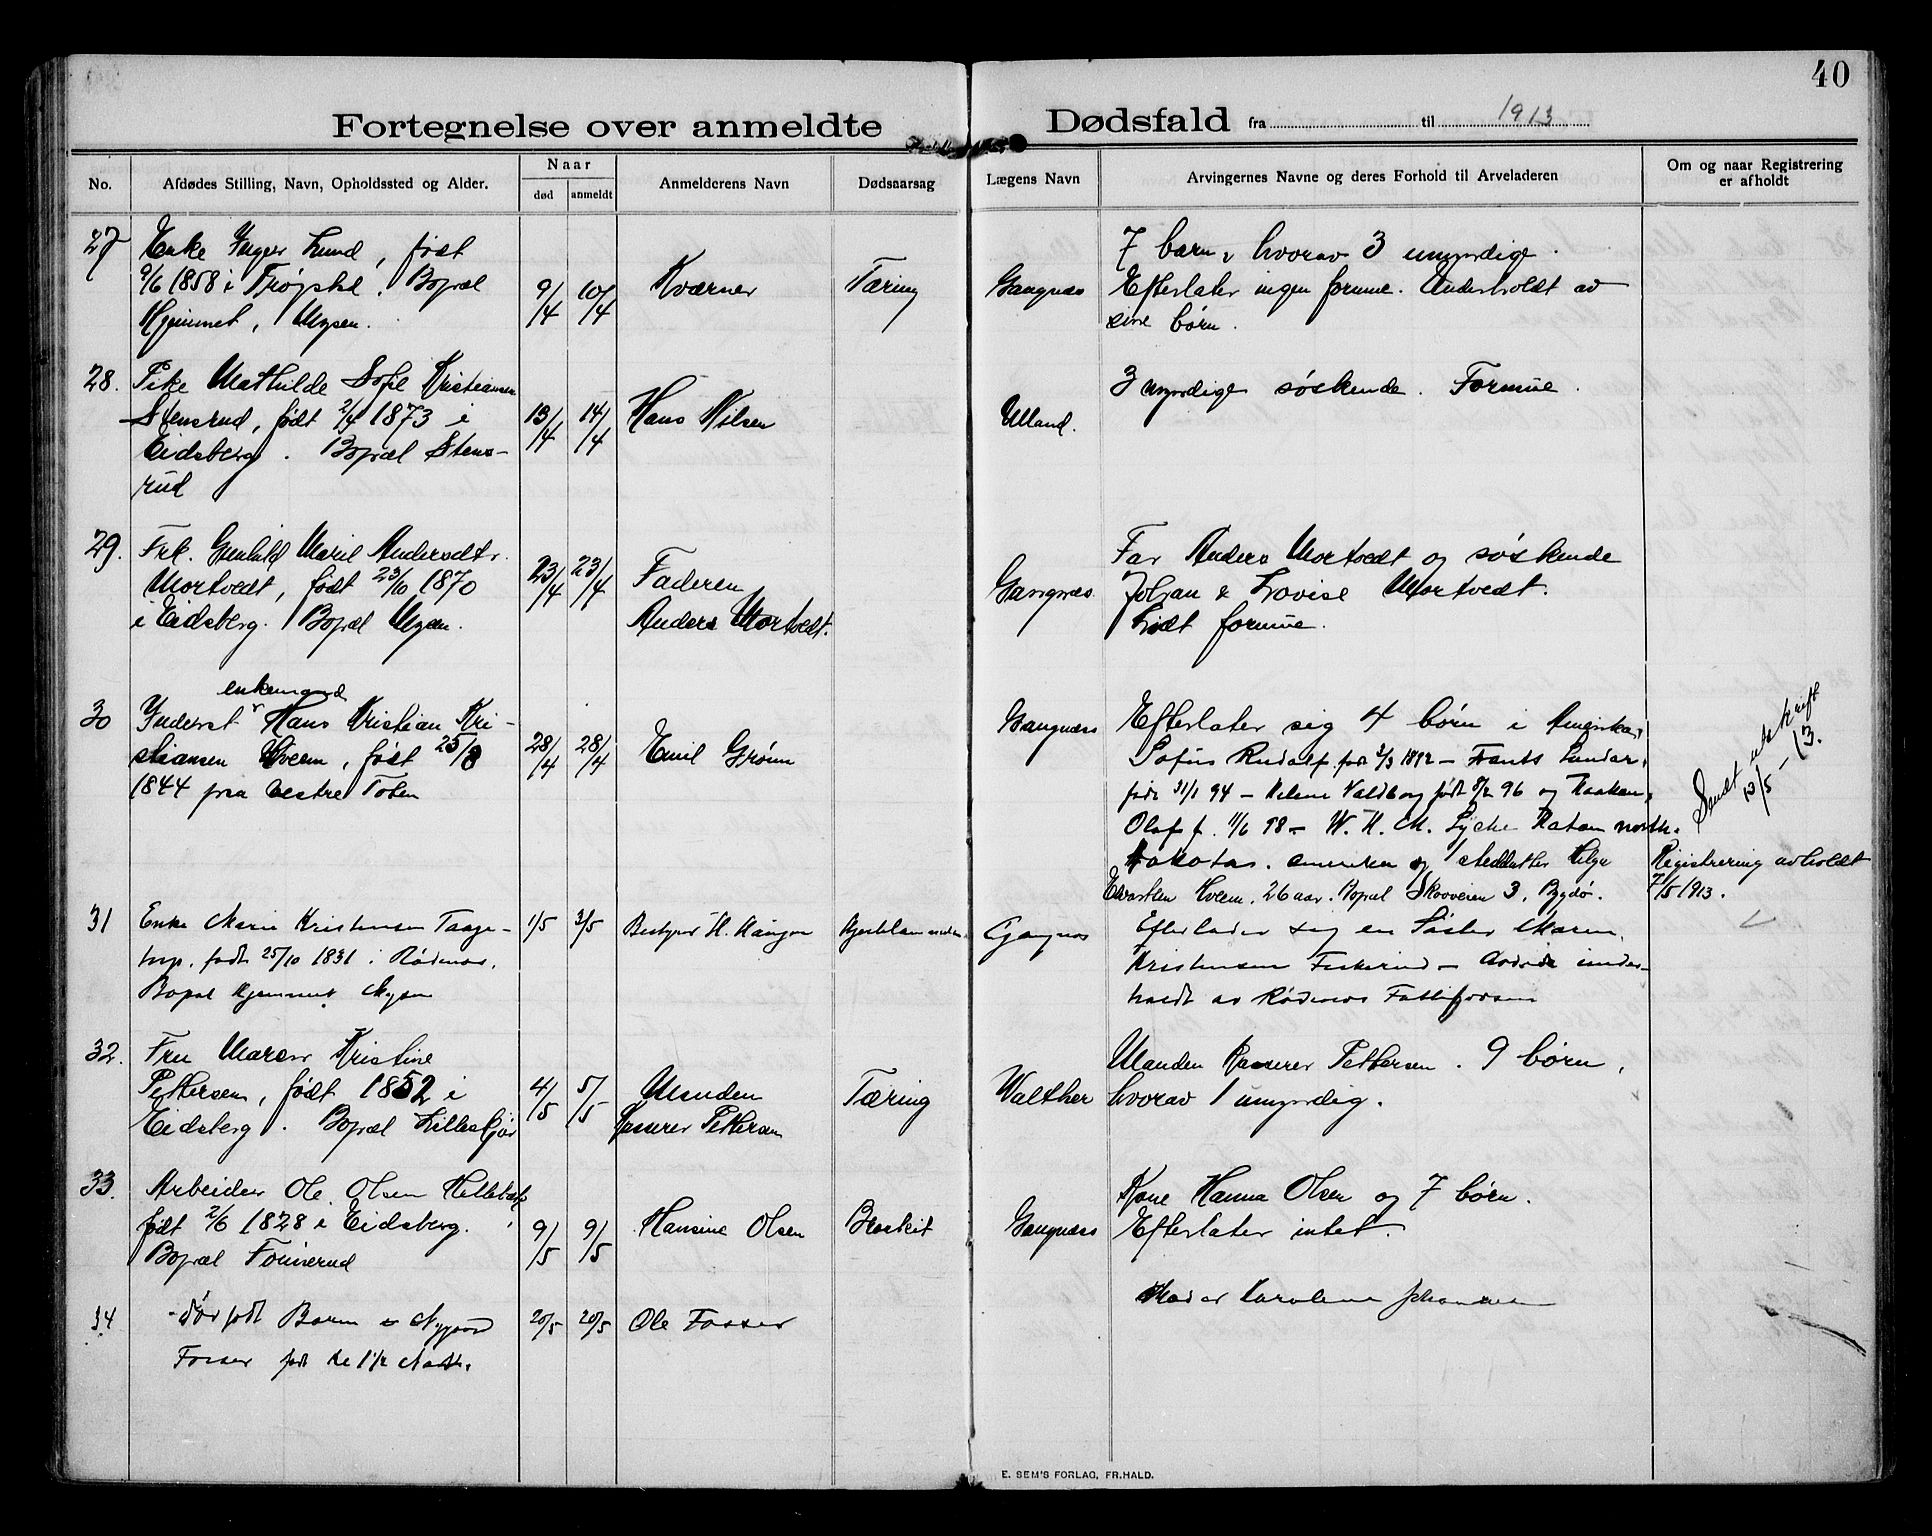 40
Fortegnelse over anmeldte Dødsfald fra til 1913
No.
Afdødes Stilling, Navn, Opholdssted og Alder.
Naar
død
anmeldt
Anmelderens Navn
Dødsaarsag
Lægens Navn
Arvingernes Navne og deres Forhold til Arveladeren
Om og naar Registrering
er afholdt
27
Enke Inger Lund, født
9/6 1858 i Trøgstad. Bopæl
Hjemmet, Mysen.
9/4
10/4
Kværner
Tæring
Gangnæs
7 barn, hvorav 3 umyndige.
Efterlater ingen formue. Underholdt av
sine børn.
28.
Pike Mathilde Sofie Kristiansen
Stensrud, født 2/4 1873 i
Eidsberg. Bopæl Stens-
rud
13/4
14/4
Hans Nilsen
Ulland.
3 myndige søskende. Formue.
29.
Frk. Gunhild Marie Andersdtr.
Mortvedt, født 23/10 1870
i Eidsberg. Bopæl Mysen.
23/4
23/4
Faderen
Anders Mortvedt.
Gangnæs
Far Anders Mortvedt og søskende
Johan & Lovise Mortvedt.
Lidt formue.
30
enkemand
Inderst Hans Kristian Kri-
stiansen Hveem, født 25/8
1844 paa vestre Toten
28/4
28/4
Emil Grønn
Gangnæs
Efterlater sig 4 børn i Amerika,
Sofus Rudolf født 2/3 1892 –
født 31/1 94 – Valdborg født 96 og Haakon
Olaf f. 11/6 98 – W. H. M. north
Dakota. Amerika og 1 Helga
Hveem. 26 aar. Bopæl Skovveien 3, Bygdø.
Sendt utskrift
13/5 – 13.
Registrering avholdt
7/5 1913.
31
Enke Marie Kristensen Taage-
trup, født 25/10 1831 i Rødenes.
Bopæl Hjemmet Mysen
1/5
3/5
Bestyrer H.
Gangnæs
Efterlader sig en Søster Maren
Kristensen – under-
holdt av Rødenes
32.
Fru Maren Kristine
Pettersen, født 1852 i
Eidsberg. Bopæl
4/5
5/5
Manden
Kasserer Pettersen
Tæring
Walther
Manden Kasserer Pettersen. 9 børn,
hvorav 1 umyndig.
33.
Arbeider Ole Olsen
født 2/6 1828 i Eidsberg.
Bopæl
9/5
9/5
Hansine Olsen
Gangnæs
Kone Hanna Olsen og 7 børn.
Efterlater intet.
34
Dødfødt Barn
Fosser født kl 1 1/2
20/5
20/5
Ole Fosser
Moder Karoline Johansen
E. SEM'S FORLAG, FR.HALD.